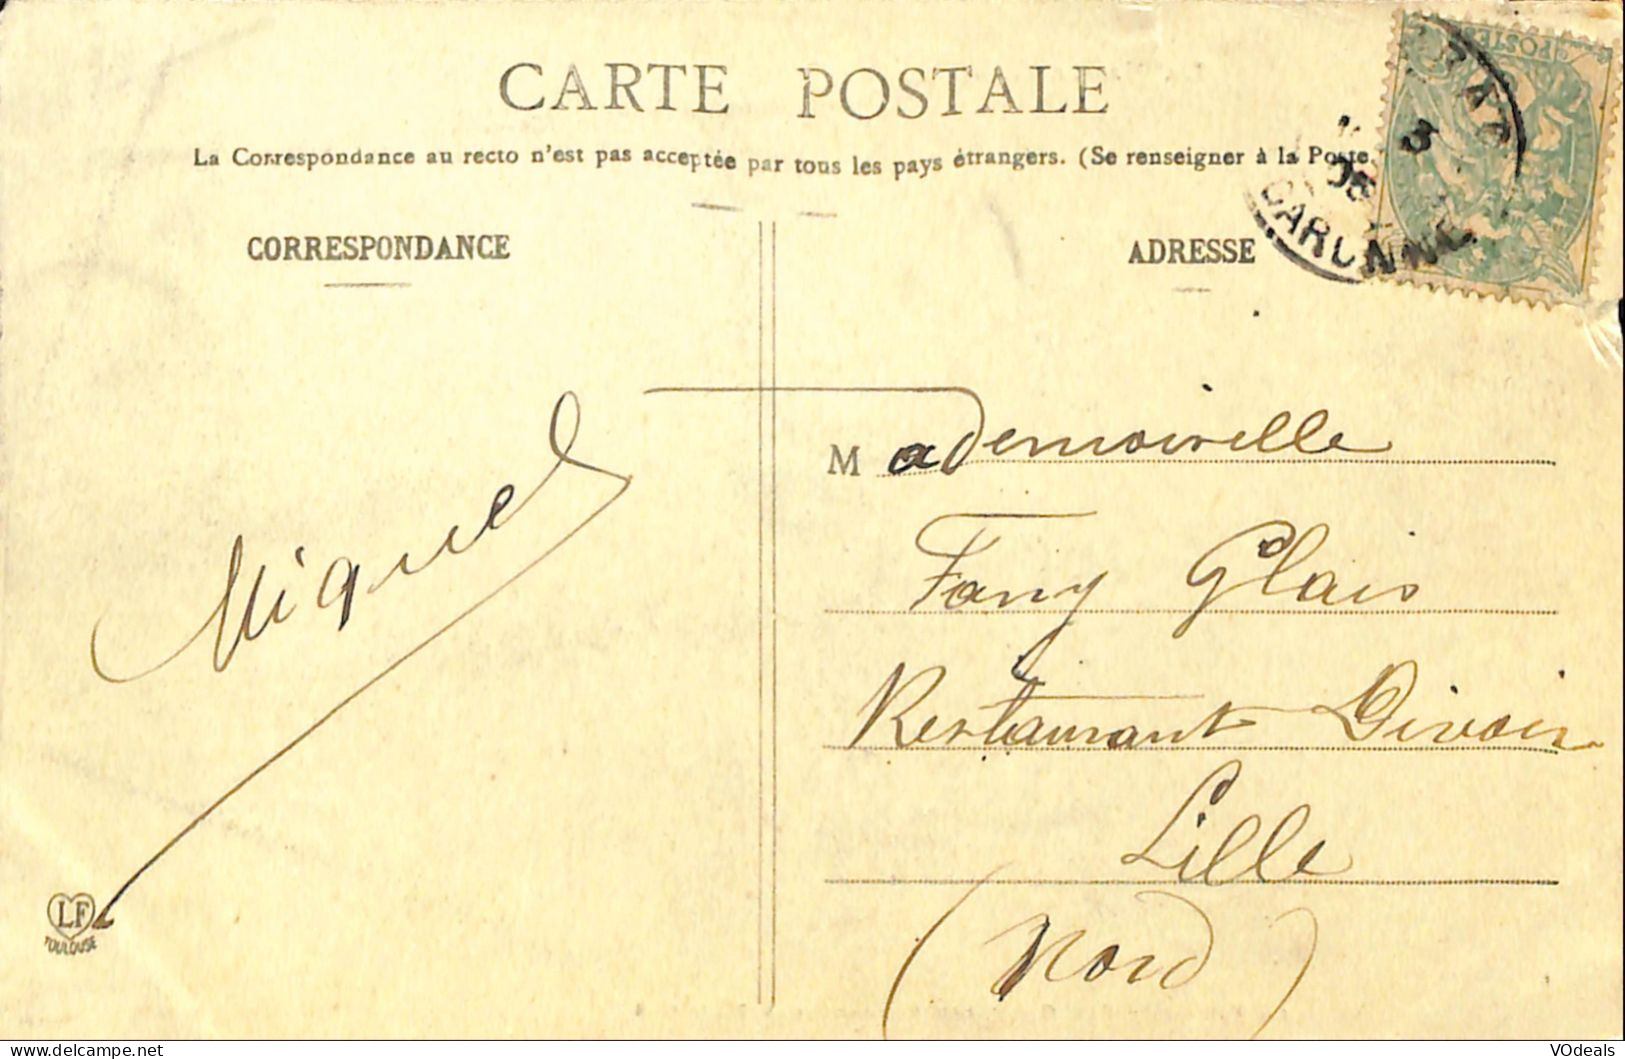 CARTE POSTALE
La Correspondance au recto n'est pas acceptée par tous les pays étrangers. (Se renseigner à la Poste
CORRESPONDANCE
ADRESSE
POSTES
3
GARONNE
Mademoiselle
Fany Glais
Restaurant Divoir
Lille
(Nord)
Miquel
LF
TOULOUSE
delcampe.net
VOdeals